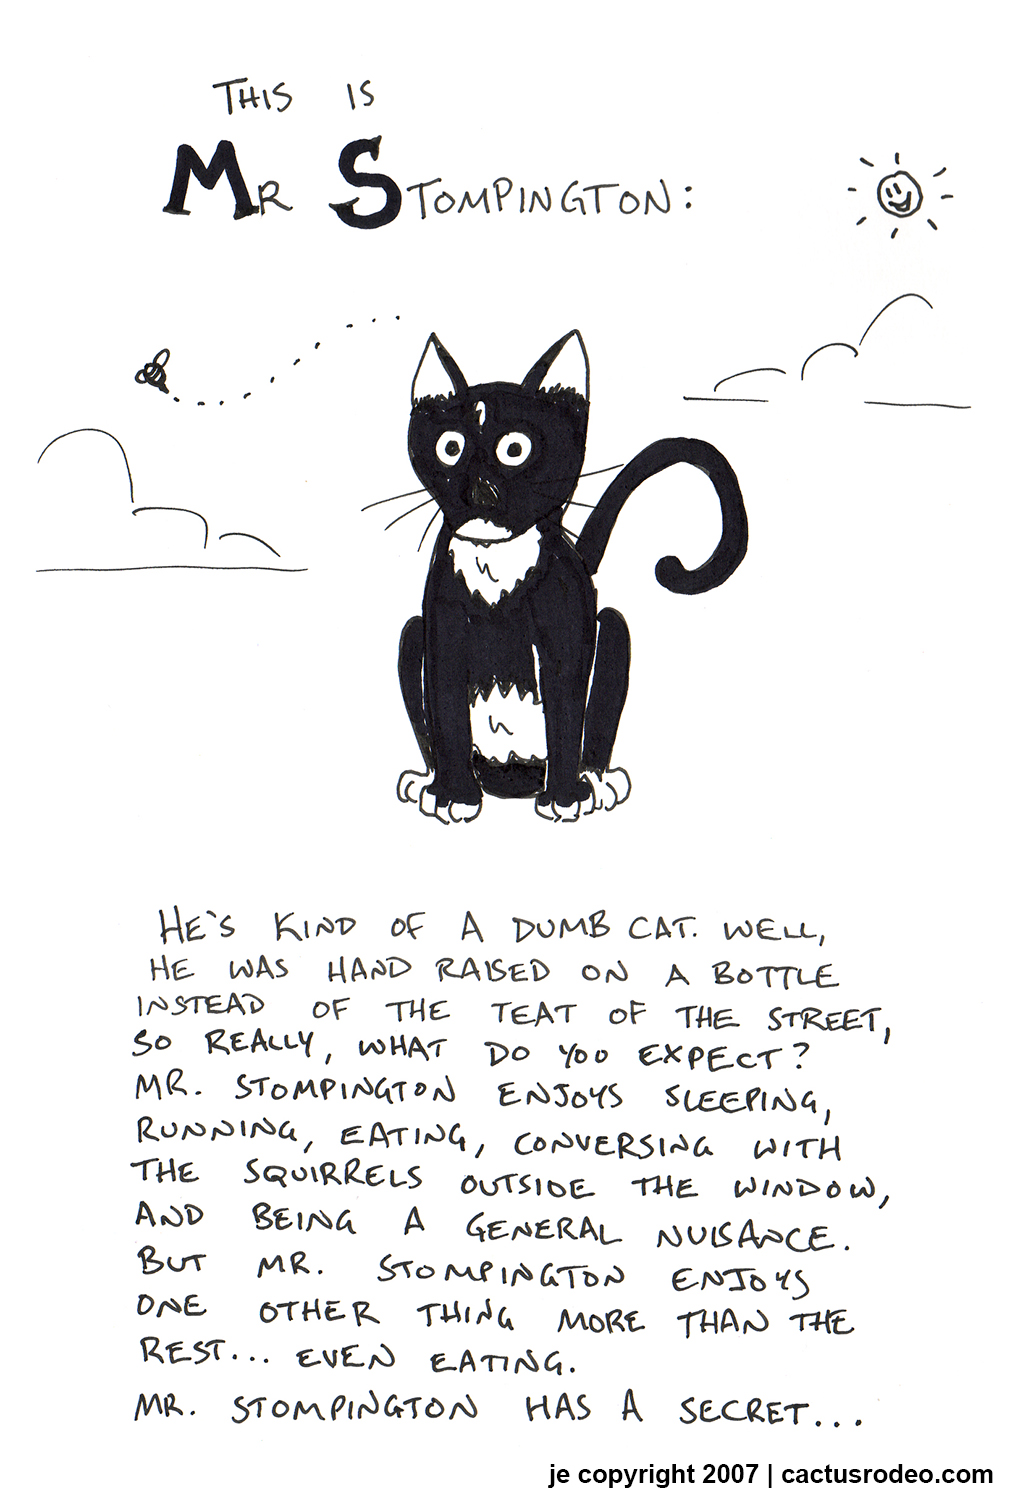 THIS IS
MR STOMPINGTON:
HE'S KIND OF A DUMB CAT. WELL,
HE WAS HAND RAISED ON A BOTTLE
INSTEAD OF THE TEAT OF THE STREET,
SO REALLY, WHAT DO YOU EXPECT?
MR. STOMPINGTON ENJOYS SLEEPING,
RUNNING, EATING, CONVERSING WITH
THE SQUIRRELS OUTSIDE THE WINDOW,
AND BEING A GENERAL NUISANCE.
BUT MR. STOMPINGTON ENJOYS
ONE OTHER THING MORE THAN THE
REST... EVEN EATING.
MR. STOMPINGTON HAS A SECRET...
je copyright 2007 | cactusrodeo.com